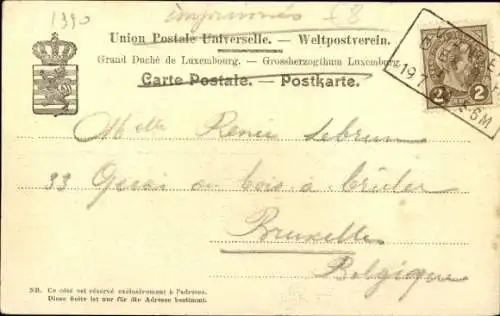 1390 imprimés 58
Union Postale Universelle. — Weltpostverein.
Grand Duché de Luxembourg. — Grossherzogthum Luxemburg
Carte Postale. — Postkarte.
2 2
19 7
5M
Melle Renée Lebrun
33 Quai au bois à brûler
Bruxelles
Belgique
NB. Ce côté est réservé exclusivement à l'adresse.
Diese Seite ist nur für die Adresse bestimmt.